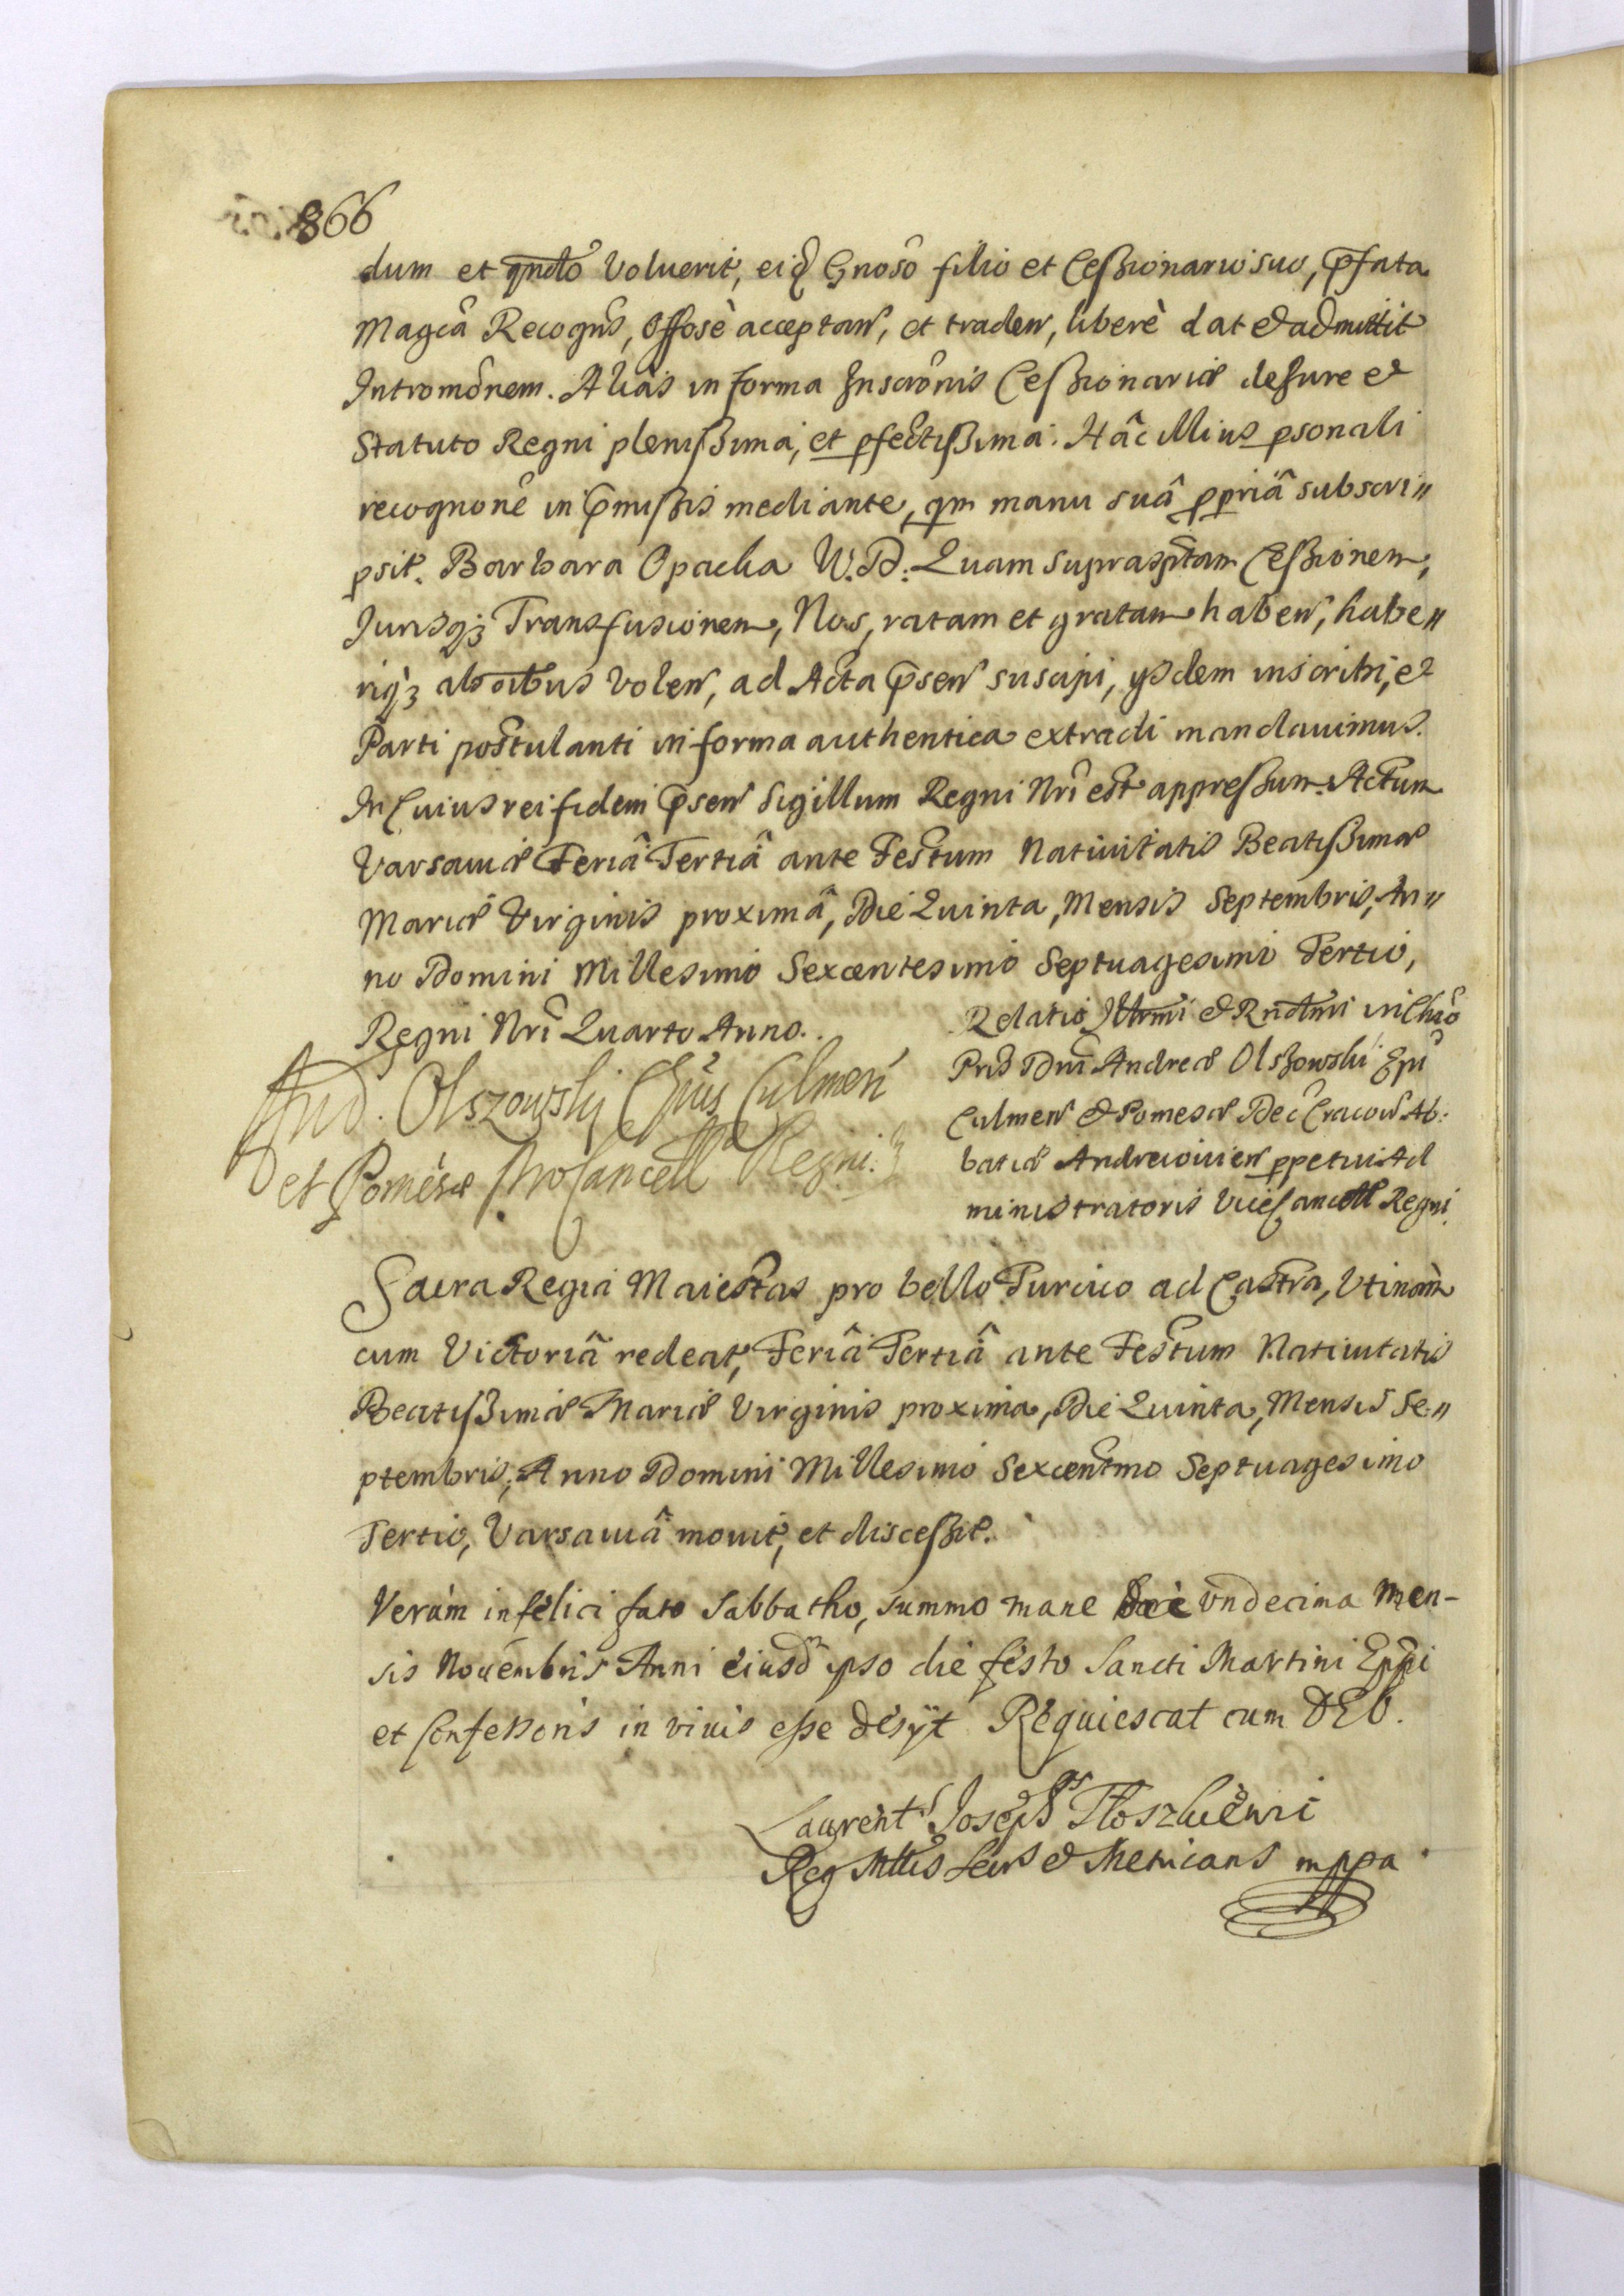 866
dum et qndo Voluerit, eiq Gnoso filio et Cessionario suo, pfata
Magca Recogns, Offose acceptan, et traden, liberè dat et admittit
Intromonem. Alias in forma Inscronis Cessionariæ de Jure et
Statuto Regni plenissima, et pfectissima. Hâc illius psonali
recognone in pmissis mediante, qm manu suâ ppriâ subscri〃
psit. Barbara Opacka W. P: Quam suprasptam Cessionem,
Jurisqz Transfusionem, Nos, ratam et gratam haben, habe〃
riqz ab oibus volen, ad Acta psen suscipi, ijsdem inscribi, et
Parti postulanti in forma authentica extradi mandauimus.
In Cuius rei fidem psen Sigillum Regni Nri est appressum. Actum
Varsauiæ Feriâ Tertiâ ante Festum Natiuitatis Beatissimæ
Mariæ Virginis proximâ, Die Quinta, Mensis Septembris, An〃
no Domini Millesimo Sexcentesimo Septuagesimo Tertio,
Regni Nri Quarto Anno.
And. Olszowskj Eppus Culmen
et Pomesæ ProCancell Regni.
Relatio Illrmi et Rndmi in Chro
Pris Dni Andreæ Olszowski Epi
Culmen et Pomesæ Dec Cracow Ab:
batiæ Andreiouien ppetui Ad
ministratoris ViceCancell Regni.
Sacra Regia Maiestas pro bello Turcico ad Castra, Vtinam
cum Victoriâ redeat, Feriâ Tertiâ ante Festum Natiuitatis
Beatissimæ Mariæ Virginis proxima, Die Quinta, Mensis Se:〃
ptembris, Anno Domini Millesimo Sexcentmo Septuagesimo
Tertio, Varsauiâ mouit, et discessit.
Verùm infelici fato Sabbatho, summo mane Die vndecima Men-
sis Nouembris Anni eiusd ipso die festo Sancti Martini Eppi
et Confessoris in viuis esse desijt Requiescat cum DEO.
Laurent Joseph
Reg Mttis Secrs et Metricans mppa